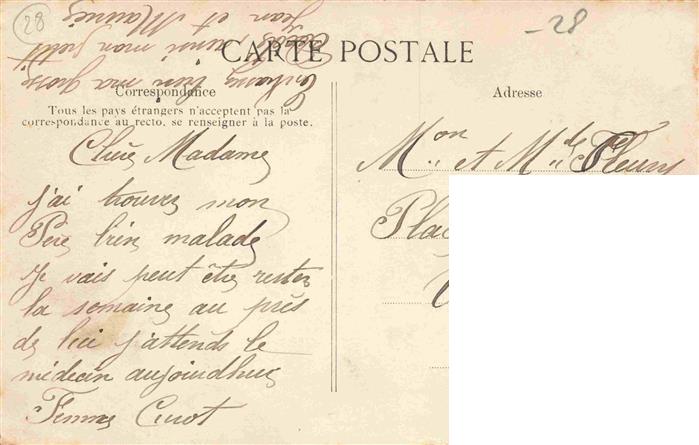 28
-28
CARTE POSTALE
Correspondance
Tous les pays étrangers n'acceptent pas la
correspondance au recto, se renseigner à la poste.
Adresse
Chère Madame
j'ai trouvez mon
Père bien malade
Je vais peut être rester
la semaine au près
de lui j'attends le
médecin aujourdhui
Femme
Embrassez bien ma grosse
aussi mon petit
Jean et Maurice
Mon et Mde Fleury